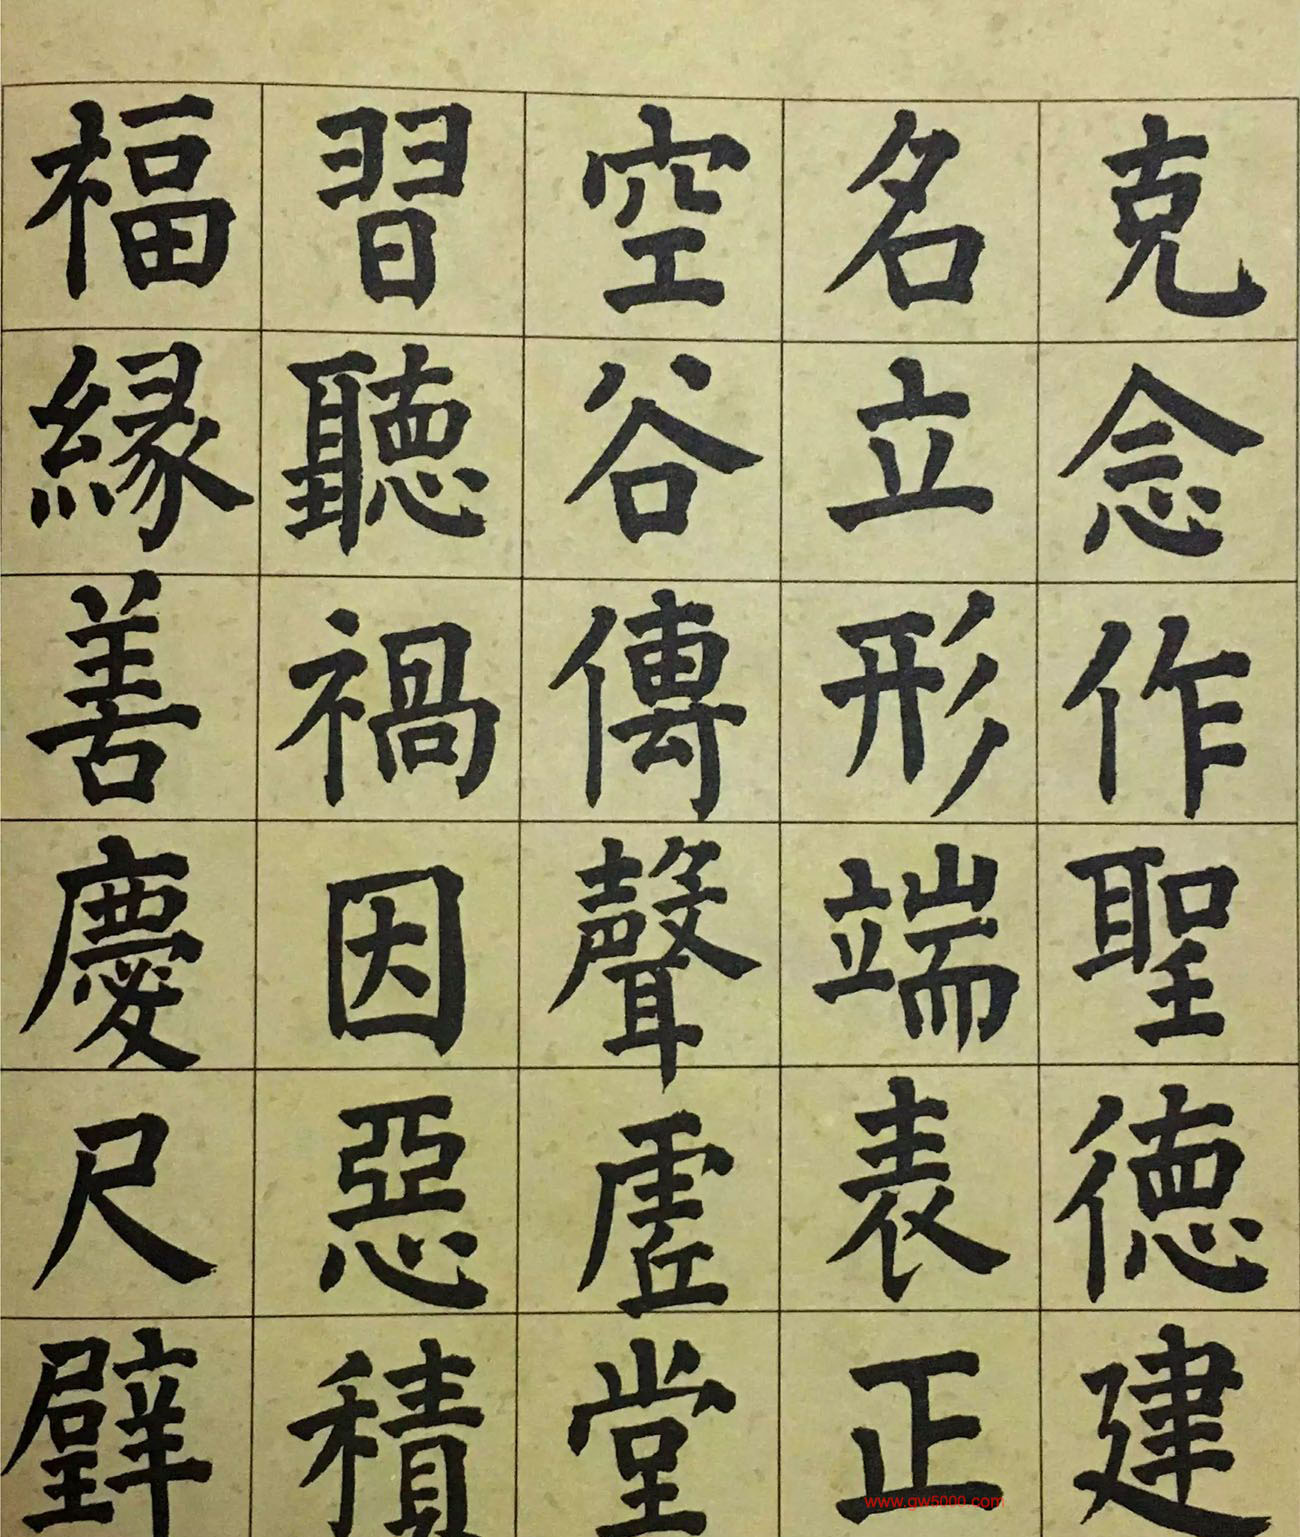 克念作聖德建
名立形端表正
空谷傳聲虛堂
習聽禍因惡積
福緣善慶尺璧
www.gw5000.com